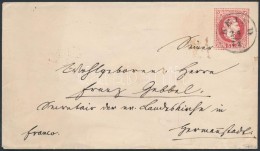 Seiner
Wohlgeboren Herrn
Franz Gebbel
Secretär der ev. Landeskirche in
franco. Hermannstadt